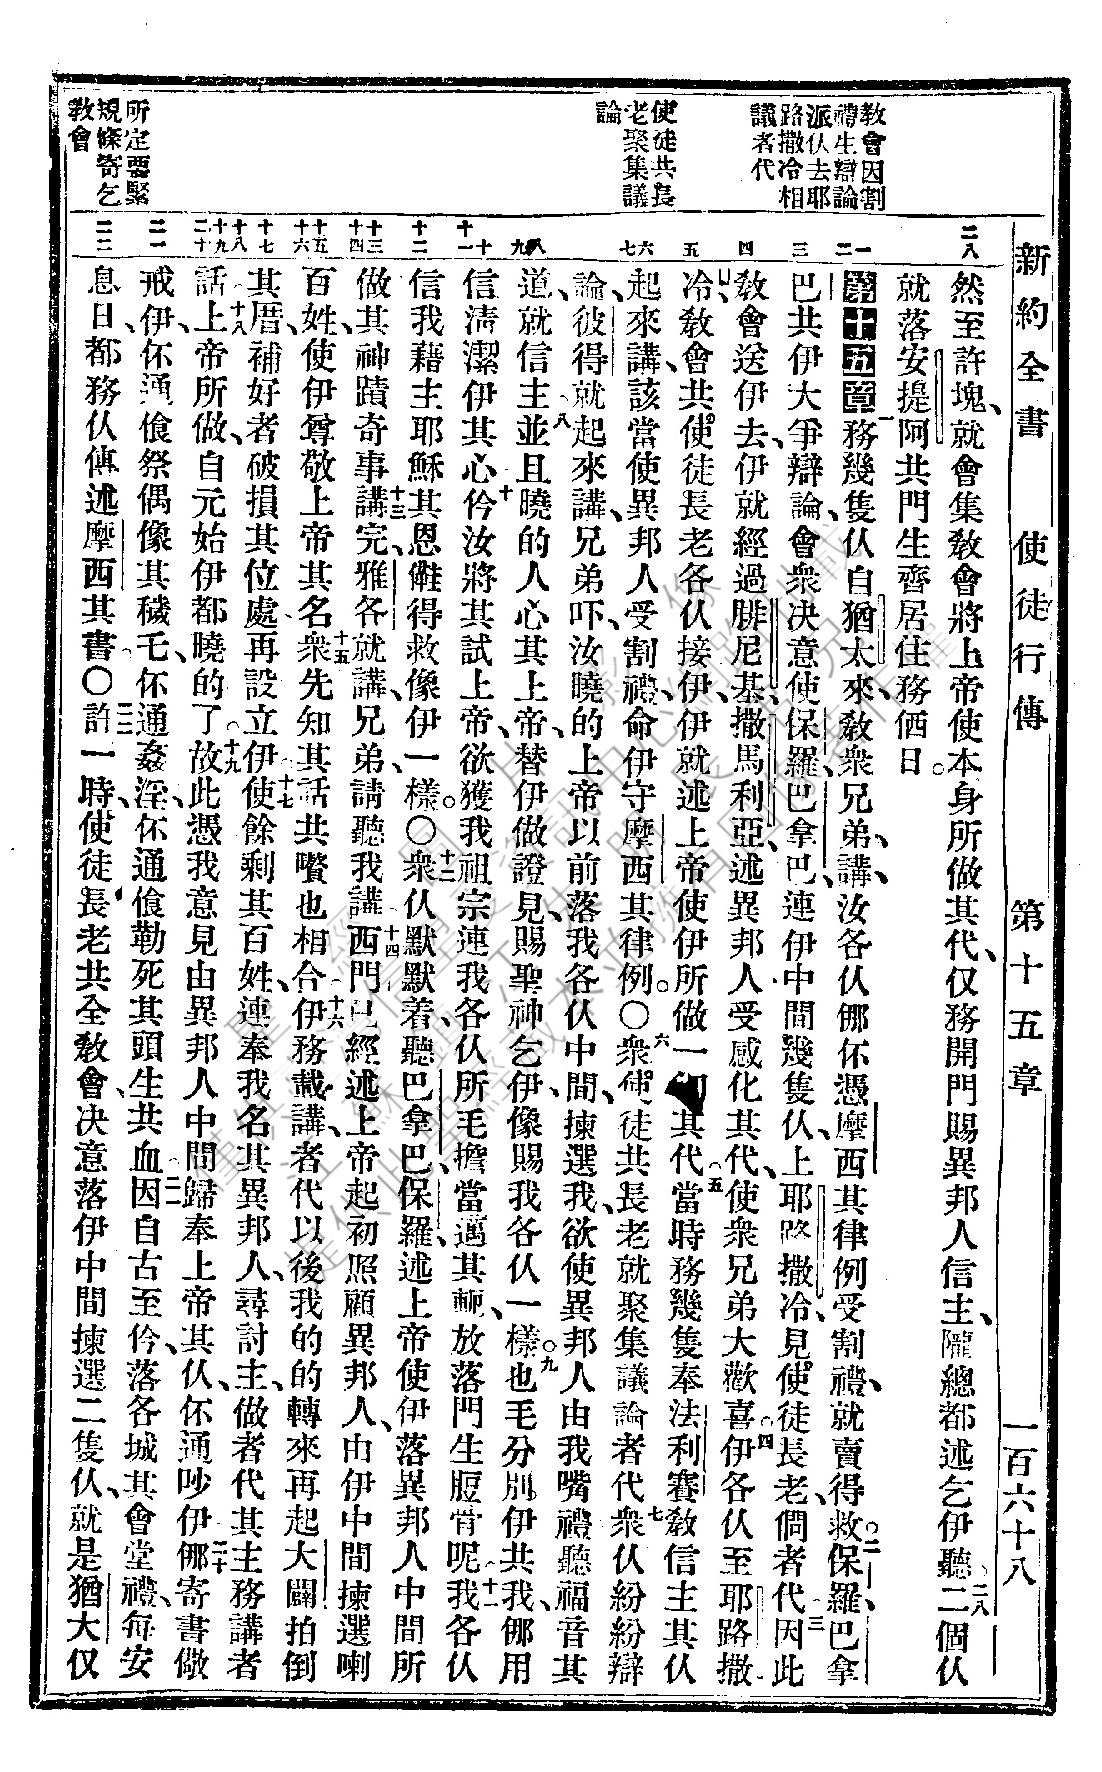 新約全書 使徒行傳 第十五章 一百六十八
教會因割
禮生辯論
派仈去耶
路撒冷相
議者代
使徒共長
老聚集議
論
所定要緊
規條寄乞
教會
然至許塊、就會集敎會將上帝使本身所做其代、仅務開門賜異邦人信主、隴總都述乞伊聽。二八二個仈
就落安提阿共門生齊居住務㑚日。
第十五章 一務幾隻仈自猶太來、敎衆兄弟、講、汝各仈㑚伓憑摩西其律例受割禮、就賣得救。二保羅巴拿
巴共伊大爭辯論、會衆决意使保羅、巴拿巴、連伊中間幾隻仈、上耶路撒冷、見使徒長老、倜者代。三因此
敎會送伊去、伊就經過腓尼基、撒馬利亞、述異邦人受感化其代、使衆兄弟大歡喜。四伊各仈至耶路撒
冷、敎會共使徒長老各仈接伊、伊就述上帝使伊所做一切其代。五當時務幾隻奉法利賽敎信主其仈
起來講、該當使異邦人受割禮、命伊守摩西其律例。〇六衆使徒共長老就聚集議論者代。七衆仈紛紛辯
論、彼得就起來講、兄弟吓、汝曉的、上帝以前落我各仈中間、揀選我、欲使異邦人由我嘴禮聽福音其
道、就信主。八並且曉的人心其上帝、替伊做證見、賜聖神乞伊、像賜我各仈一樣。九也毛分別伊共我、㑚用
信淸潔伊其心。十仱汝將其試上帝、欲獲我祖宗連我各仈所毛擔當邁其軛、放落門生脰骨呢。十一我各仈
信我藉主耶穌其恩、㒕得救、像伊一樣。〇十二衆仈默默着、聽巴拿巴、保羅、述上帝使伊落異邦人中間所
做其神蹟奇事。十三講完、雅各就講、兄弟、請聽我講。十四西門已經述上帝起初照顧異邦人、由伊中間揀選喇
百姓、使伊尊敬上帝其名。十五衆先知其話共嚽也相合。十六伊務載講、者代以後、我的的轉來、再起大闢拍倒
其厝、補好者破損其位處、再設立伊。十七使餘剩其百姓、連奉我名其異邦人、尋討主、做者代其主務講者
話。十八上帝所做、自元始伊都曉的了。十九故此憑我意見、由異邦人中間歸奉上帝其仈、伓通吵伊。二十㑚寄書儆
戒伊、伓通飡祭偶像其穢乇、伓通姦淫、伓通飡勒死其頭生共血。二一因自古至仱、落各城其會堂禮、每安
息日、都務仈傳述摩西其書。〇二二許一時、使徒長老共全敎會、决意落伊中間揀選二隻仈、就是猶大仅